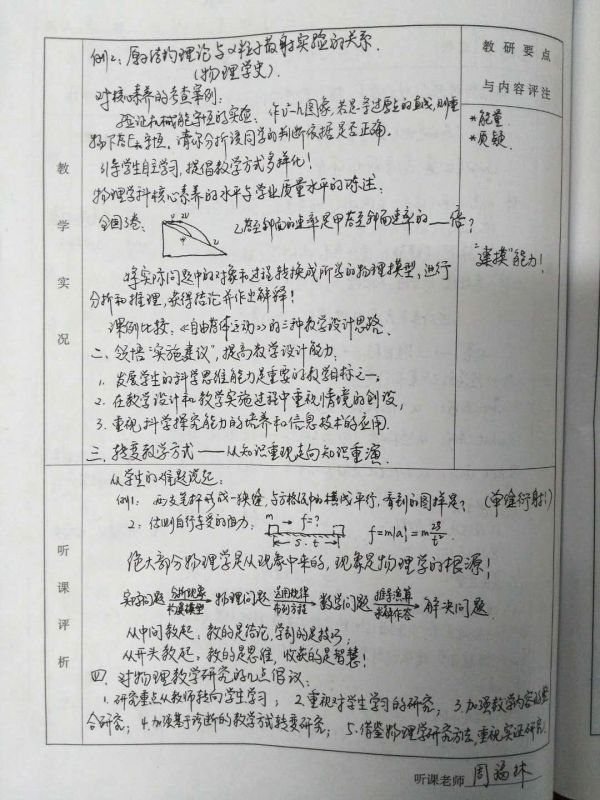 教研要点
与内容评注
教学实况
例2：原子结构理论与α粒子散射实验的关系.
(物理学史).
对核心素养的考查案例：
验证机械能守恒的实验：作v²—h图象，若是学过原点的直线，则重
物下落E守恒. 请你分析该同学的判断依据是否正确.
引导学生自主学习，提倡教学方式多样化！
物理学科核心素养的水平与学业质量水平的陈述：
全国3卷：
v 2v
乙落至斜面的速率是甲落至斜面速率的__倍？
将实际问题中的对象和过程转换成所学的物理模型，进行
分析和推理，获得结论并作出解释！
课例比较：《自由落体运动》的三种教学设计思路.
二、领悟“实施建议”，提高教学设计能力：
1. 发展学生的科学思维能力是重要的教学目标之一；
2. 在教学设计和教学实施过程中重视情境的创设，
3. 重视科学探究能力的培养和信息技术的应用.
三、转变教学方式——从知识重现走向知识重演.
*能量.
*质疑.
“建摸”能力！
听课评析
从学生的难题说起：
例1：两支笔杆形成一狭缝，与方格纸中的横线平行，看到的图样是？(单缝衍射！)
2：估测自行车受的阻力：
m → f=？
S. t
f=m|a|=m 2S/t²
绝大部分物理学是从现象中来的，现象是物理学的根源！
实际问题 分析现象 构建模型 物理问题 运用规律 布列方程 数学问题 推导演算 求解作答 解决问题
从中间教起，教的是结论，学到的是技巧；
从开头教起，教的是思维，收获的是智慧！
四、对物理教学研究的几点倡议：
1. 研究重点从教师转向学生学习；2. 重视对学生学习的研究；3. 加强教学内容的整
合研究；4. 加强基于诊断的教学方式转变研究；5. 借鉴物理学研究方法，重视实证研究.
听课老师 周福林